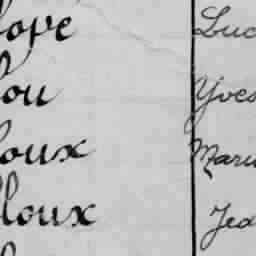 lope Luc
lou Yves
loux Mari
lloux Jea